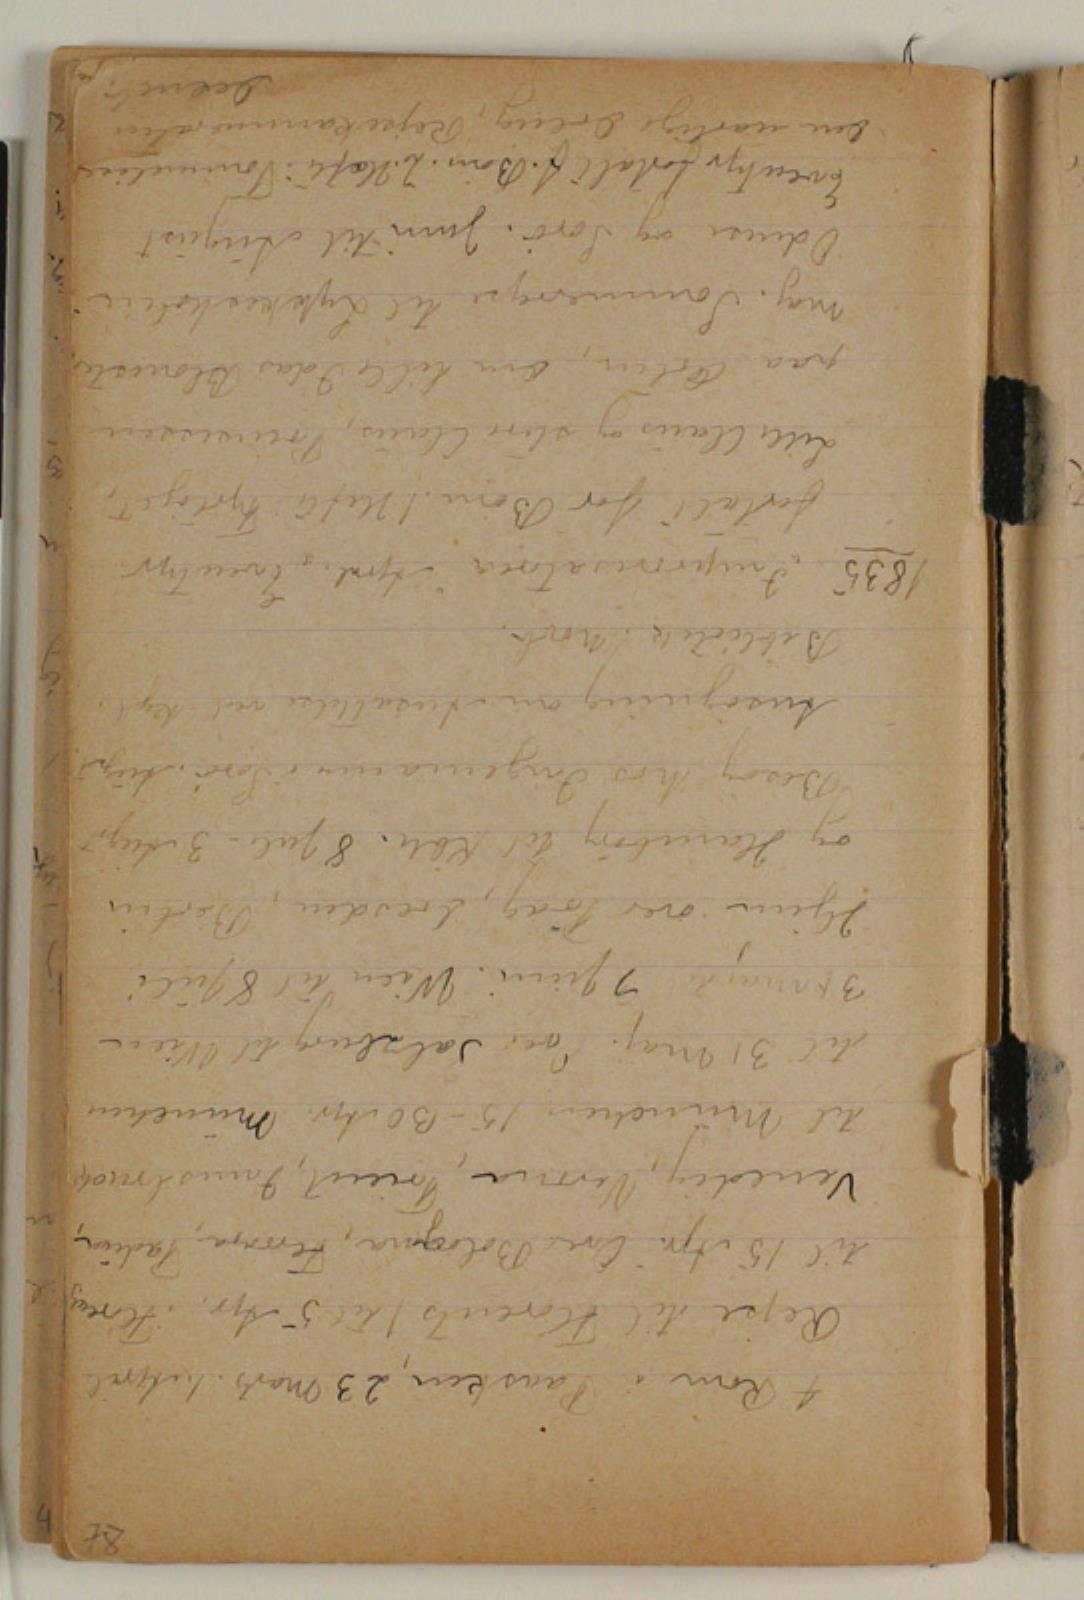 78
+ Rom i Paasken, 23 Marts. 1 April
Rejse til Florents / til 5 Apr. Florents
til 15 Apr. Over Bologna, Ferrara, Padua,
Venedig, Verona, Trient, Innsbruck
til München 15-30 Apr. München
til 31 Maj. Over Salzburg til Wien
7 Juni. Wien til 8 Juli
Hjem over Prag, Dresden, Berlin
og Hamborg til Kbh. 8 Juli - 3 Augst
Besøg hos Ingemanns i Sorø. Augst
Ansøgning om Ansættelse ved Kgl.
Bibliotek. Novb.
1835 Improvisatoren Apr. Eventyr
fortalt for Børn. 1 Hefte: Fyrtøjet,
Lille Claus og store Claus, Prinsessen
paa Ærten, Den lille Idas Blomster
Maj. Sommerrejse til Lykkesholm
Odense og Sorø. Juni til August
Eventyr fortalt f. Børn. 2. Hefte: Tommelise
den uartige Dreng, Rejsekammeraten
Decemb.